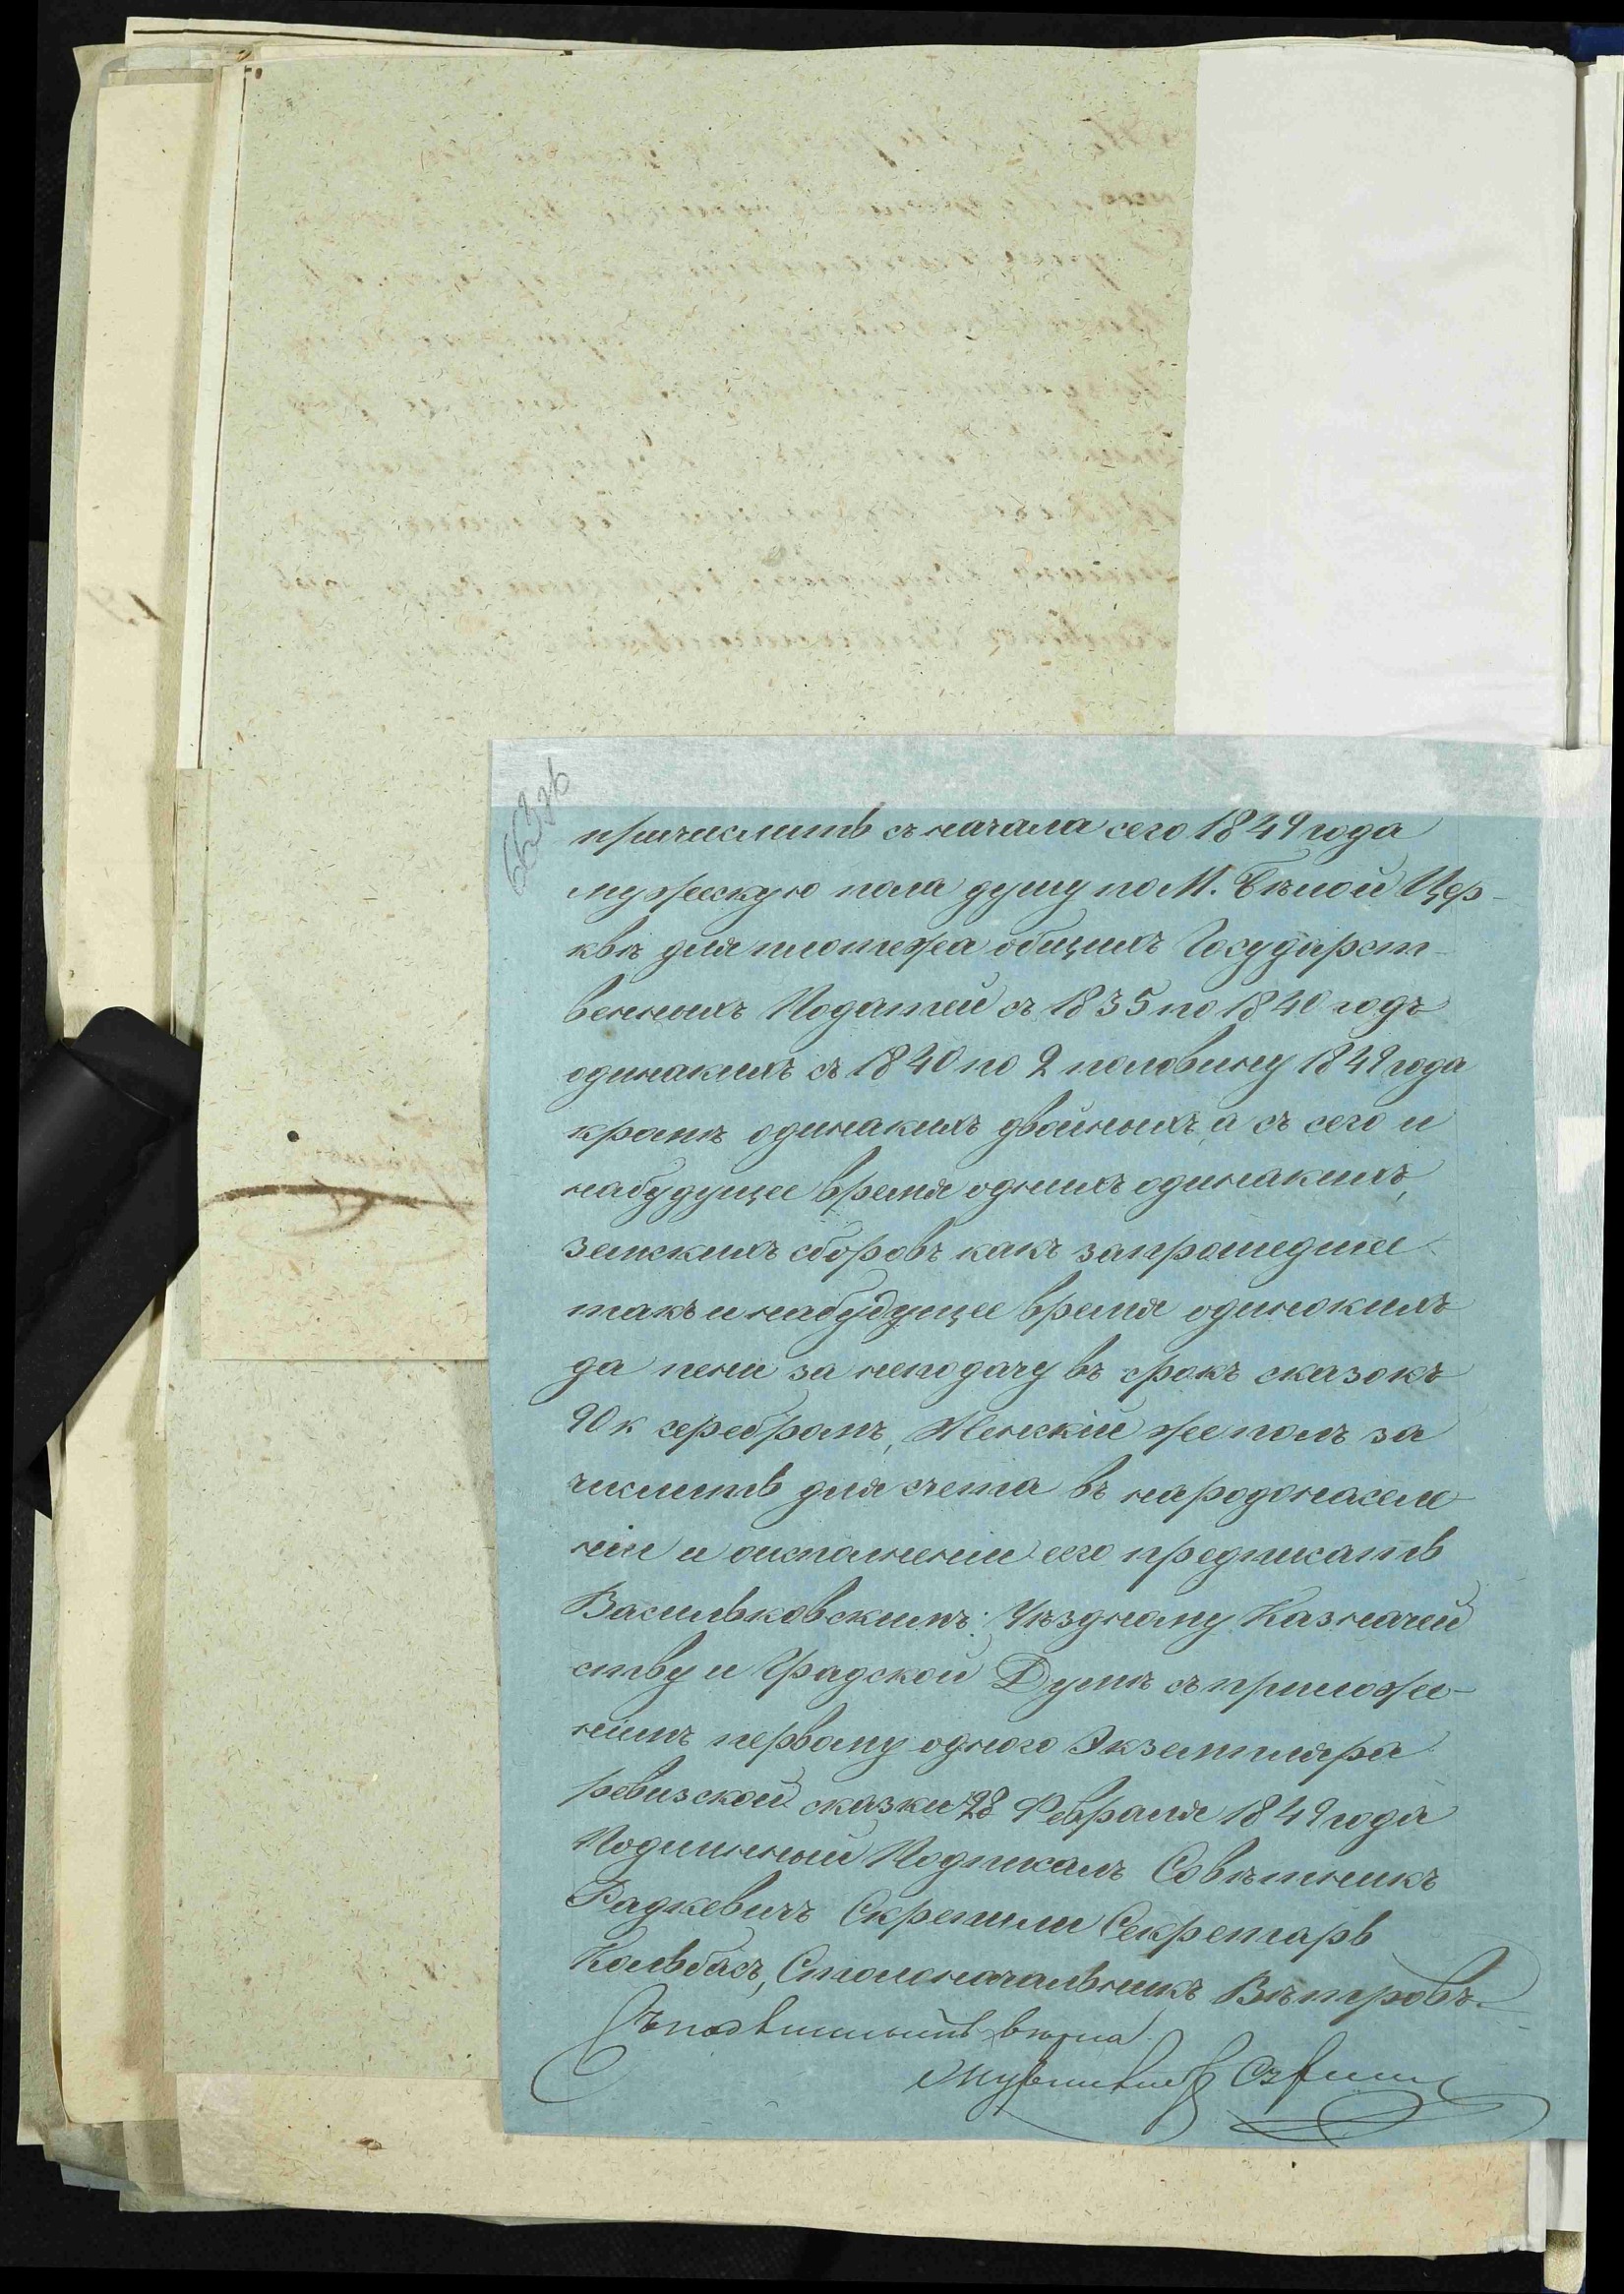 663 зв
причислить съ начала сего 1849 года
мужескую пола душу по М. Бѣлой Цер-
квѣ для платежа общихъ Государст-
венныхъ Податей съ 1835 по 1840 годъ
одинакихъ съ 1840 по 2 половину 1849 года
кромѣ одинакихъ двойныхъ, а съ сего и
набудущее время однихъ одинакихъ,
земскихъ сборовъ какъ запрошедшее
такъ и набудущее время одинокихъ
да пени за неподачу въ срокъ сказокъ
90 к серебромъ, Женскій же полъ за
числить для счета въ народонаселе
ніи и оисполненіи сего предписать
Васильковскимъ: Уѣздному Казначей
ству и Градской Думѣ съ приложе-
ніемъ первому одного Экземпляра
ревизской сказки 28 Февраля 1849 года
Подлинный Подписалъ Совѣтникъ
Радкевичъ Скрепили Секретарь
Кольбасъ, Столоначальникъ Вѣтровъ.
Съ подлиннымъ вѣрна